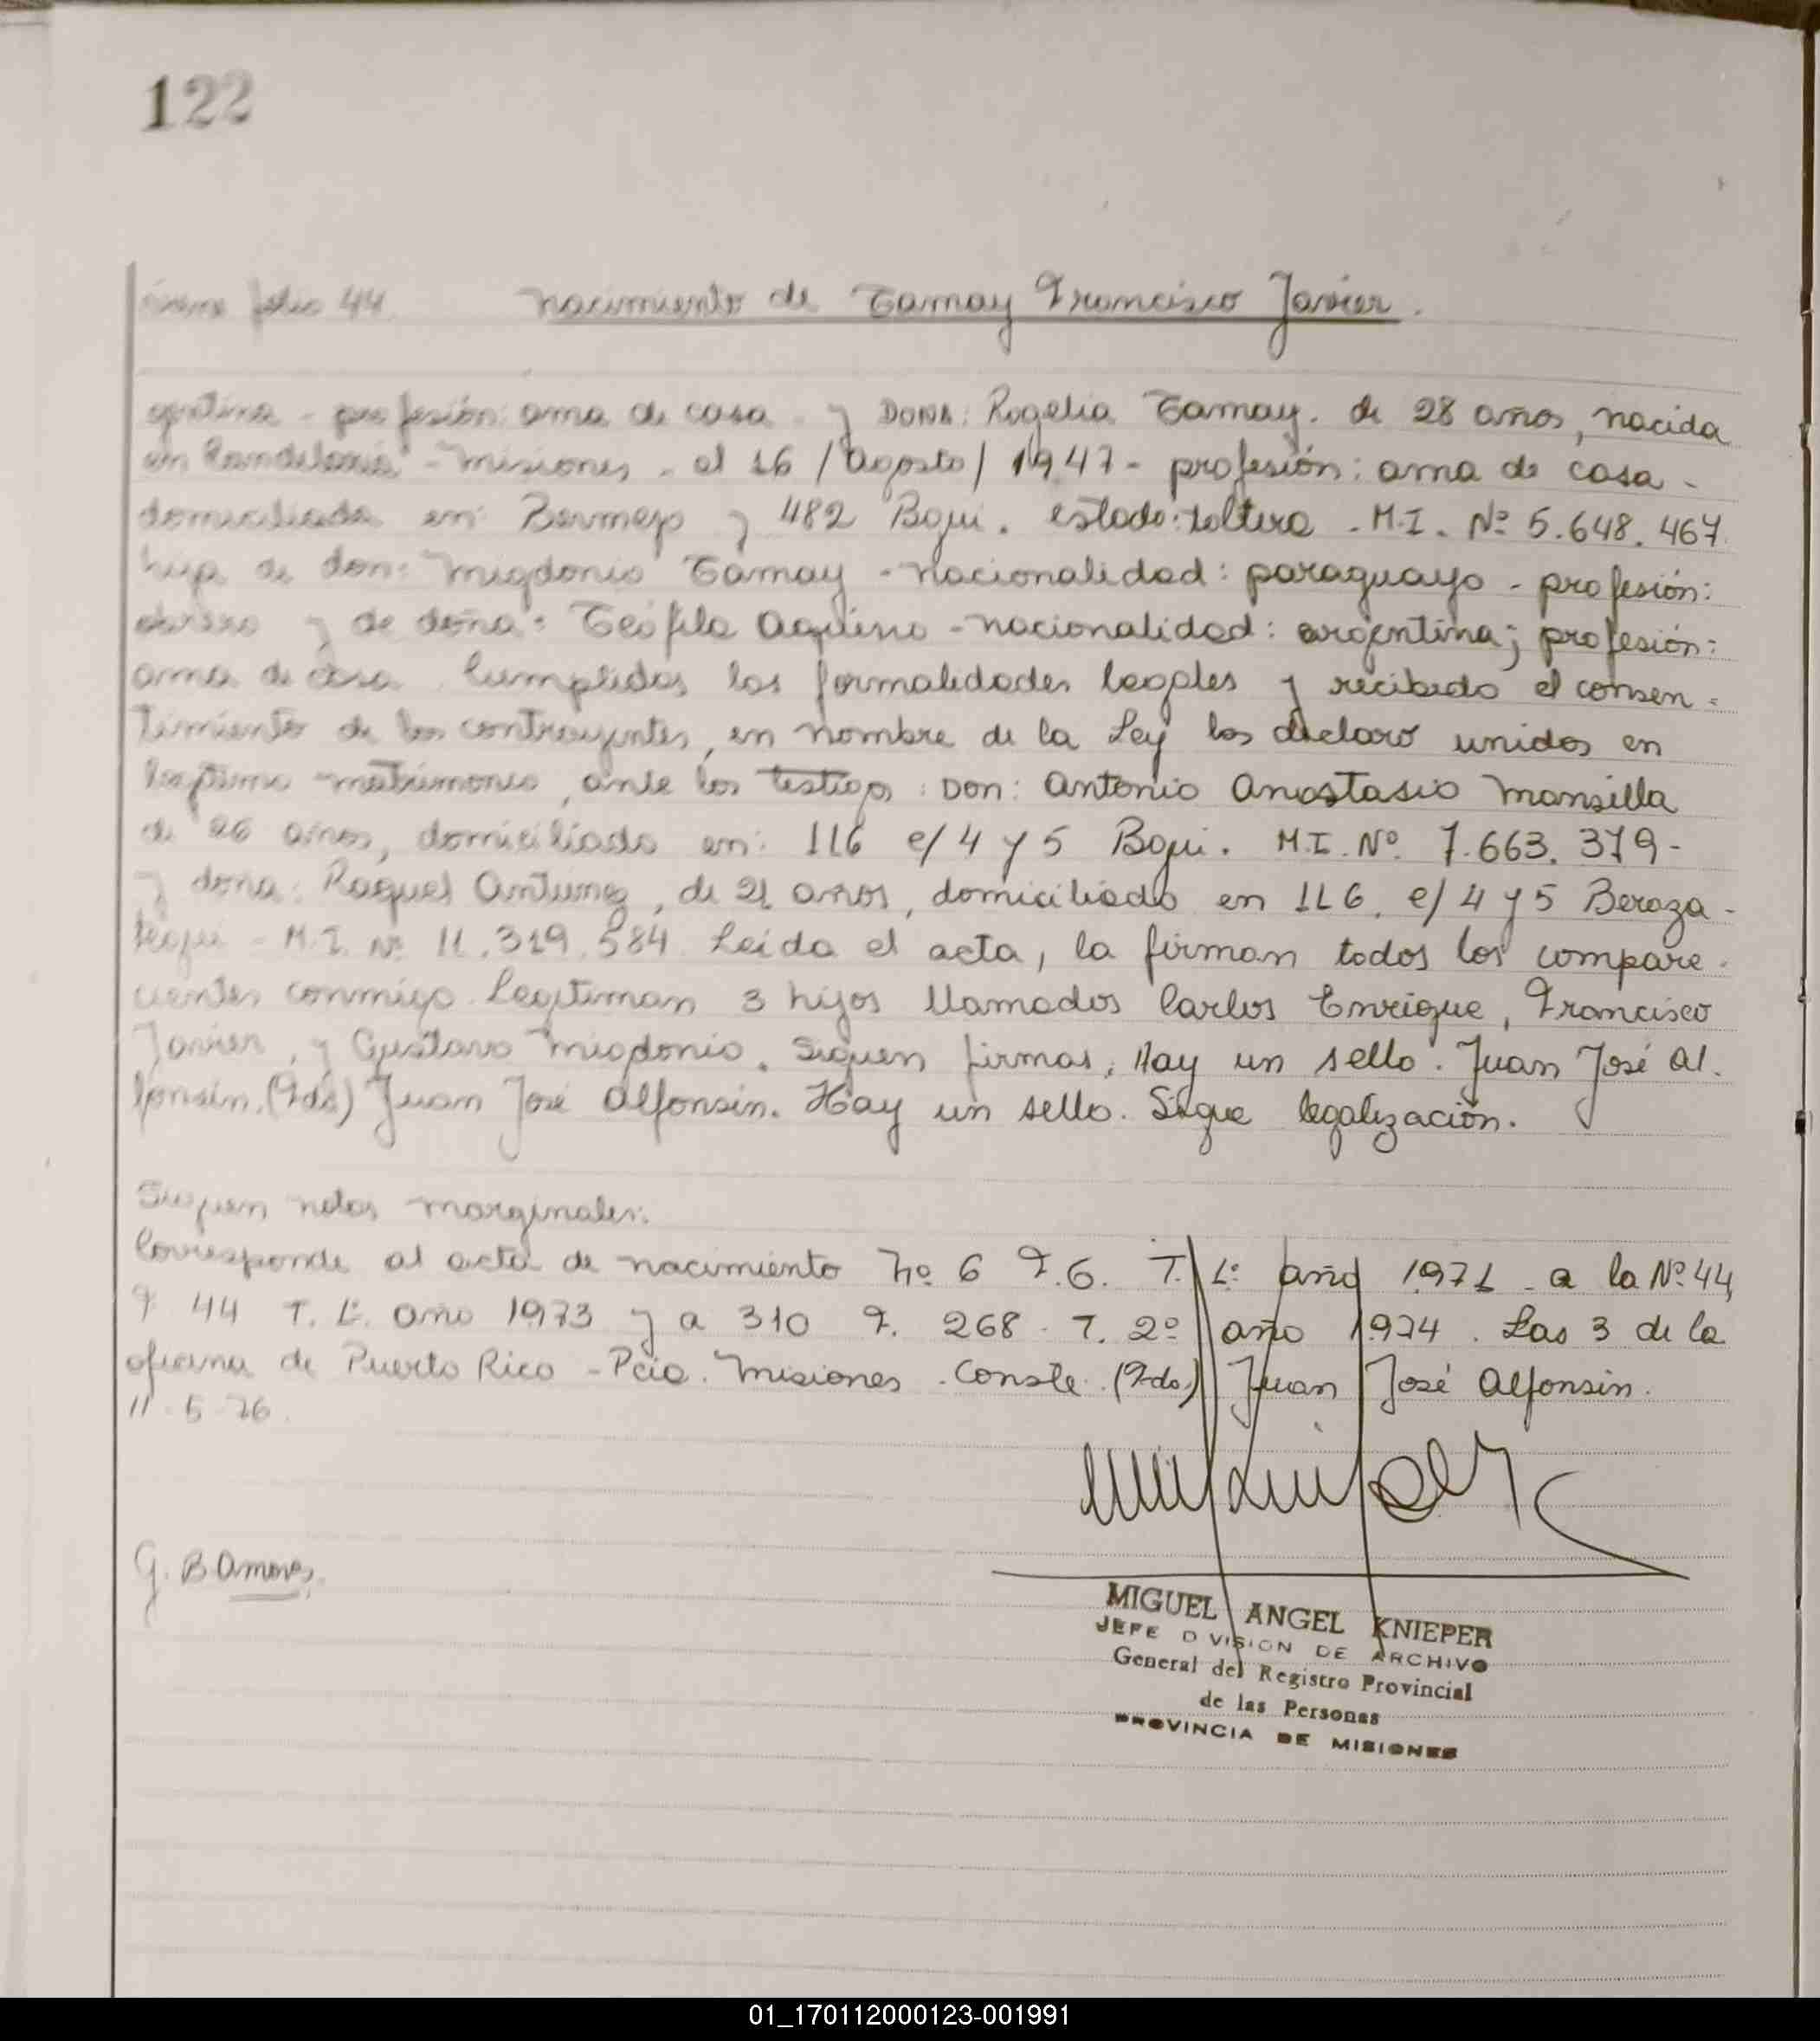 122
folio 44 Nacimiento de Tamay Francisco Javier.
gentina - profesión: ama de casa - y DOÑA: Rogelia Tamay. de 28 años, nacida
en Candelaria - Misiones - el 16 / Agosto / 1947 - profesión: ama de casa -
domiciliada en: Bermejo y 482 Bqui. estado: soltera - M.I. Nº 5.648.467
hija de don: Migdonio Tamay - nacionalidad: paraguayo - profesión:
obrero y de doña: Teófila Aquino - nacionalidad: argentina; profesión:
ama de casa. Cumplidas las formalidades legales y recibido el consen=
timiento de los contrayentes, en nombre de la Ley los declaro unidos en
legítimo matrimonio, ante los testigos: Don: Antonio Anastasio Mansilla
de 26 años, domiciliado en: 116 e/ 4 y 5 Bqui. M.I. Nº. 7.663.379-
y doña: Raquel Antunez, de 21 años, domiciliada en 116. e/ 4 y 5 Beraza-
tegui - M.I. Nº 11.319.584. Leída el acta, la firman todos los compare-
cientes conmigo. Legitiman 3 hijos llamados Carlos Enrique, Francisco
Javier, y Gustavo Migdonio. Siguen firmas, Hay un sello. Juan José Al.
fonsín. (Fdo) Juan José Alfonsín. Hay un sello. Sigue legalización.
Siguen notas marginales:
Corresponde al acta de nacimiento Nº. 6 F.6. T. 1º año 1971 - a la Nº 44,
F 44 T. 1º. año 1973 y a 310 F. 268 - T. 2º año 1974. Las 3 de la
oficina de Puerto Rico - Pcia. Misiones - Conste. (Fdo) Juan José Alfonsin.
11-5-76.
G. B Amores
MIGUEL ANGEL KNIEPER
JEFE D VISION DE ARCHIVO
General del Registro Provincial
de las Personas
PROVINCIA DE MISIONES
01_170112000123-001991